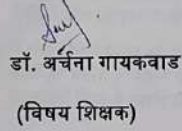 डॉ. अर्चना गायकवाड
(विषय शिक्षक)